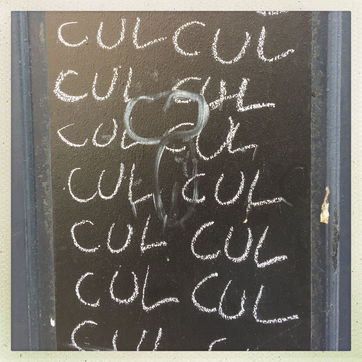 CUL CUL
CUL CUL
CUL CUL
CUL CUL
CUL CUL
CUL CUL
CUL